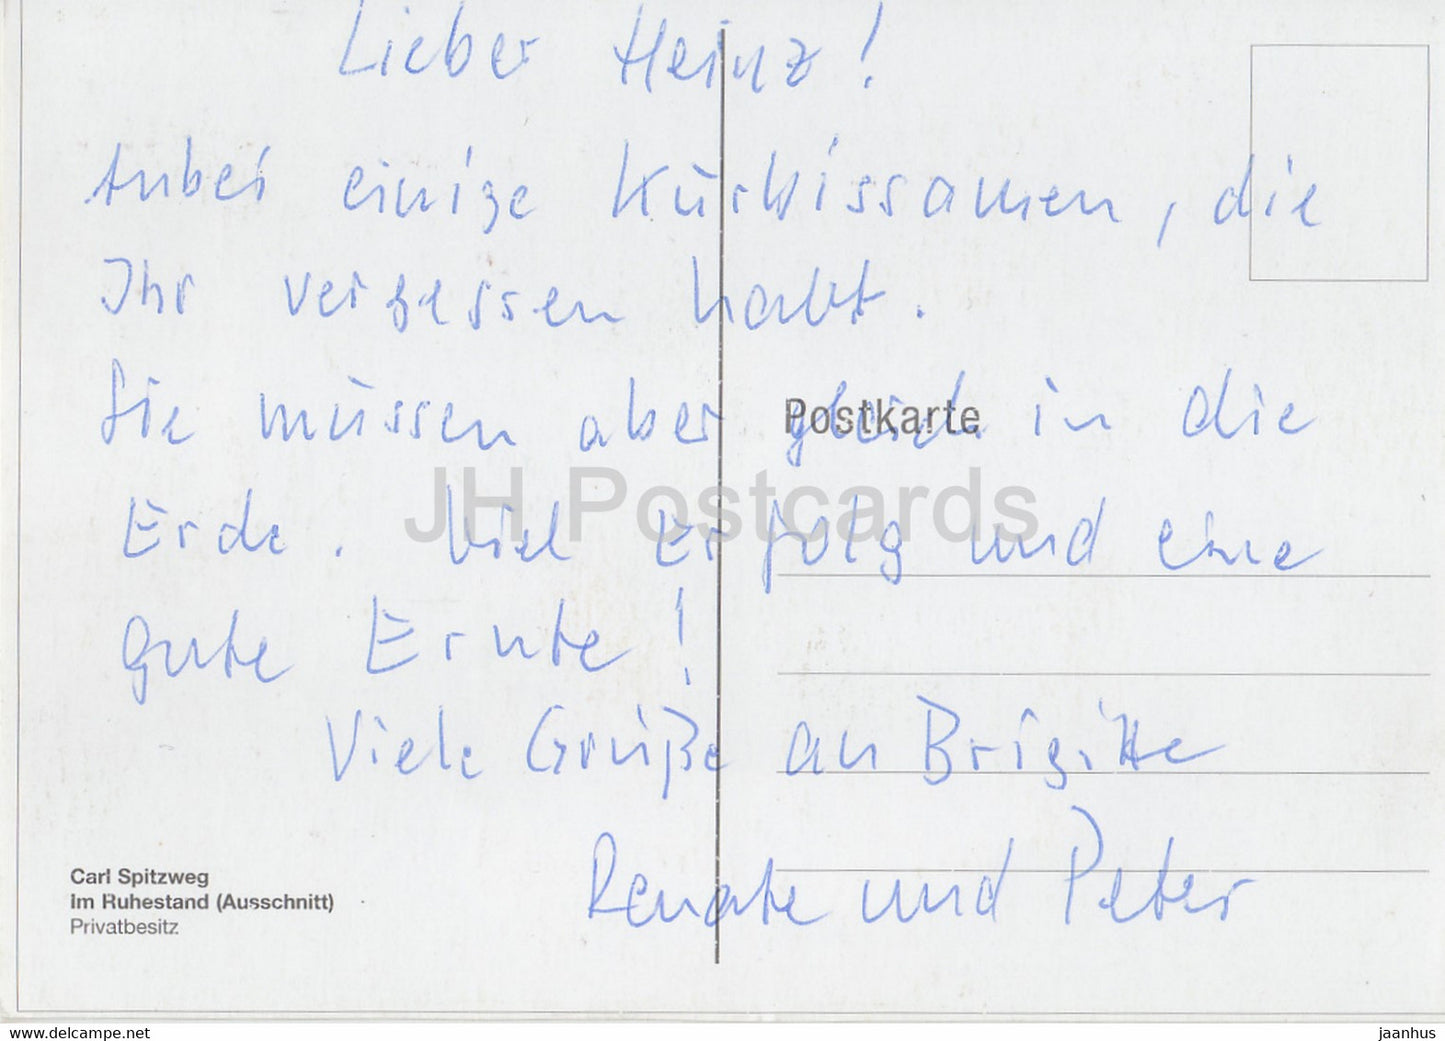 Lieber Heinz!
Anbei einige Kürbissamen, die
Ihr vergessen habt.
Sie müssen aber gleich in die
Postkarte
Erde. Viel Erfolg und eine
JH Postcards
gute Ernte!
Viele Grüße an Brigitte
Renate und Peter
Carl Spitzweg
Im Ruhestand (Ausschnitt)
Privatbesitz
www.delcampe.net
jaanhus